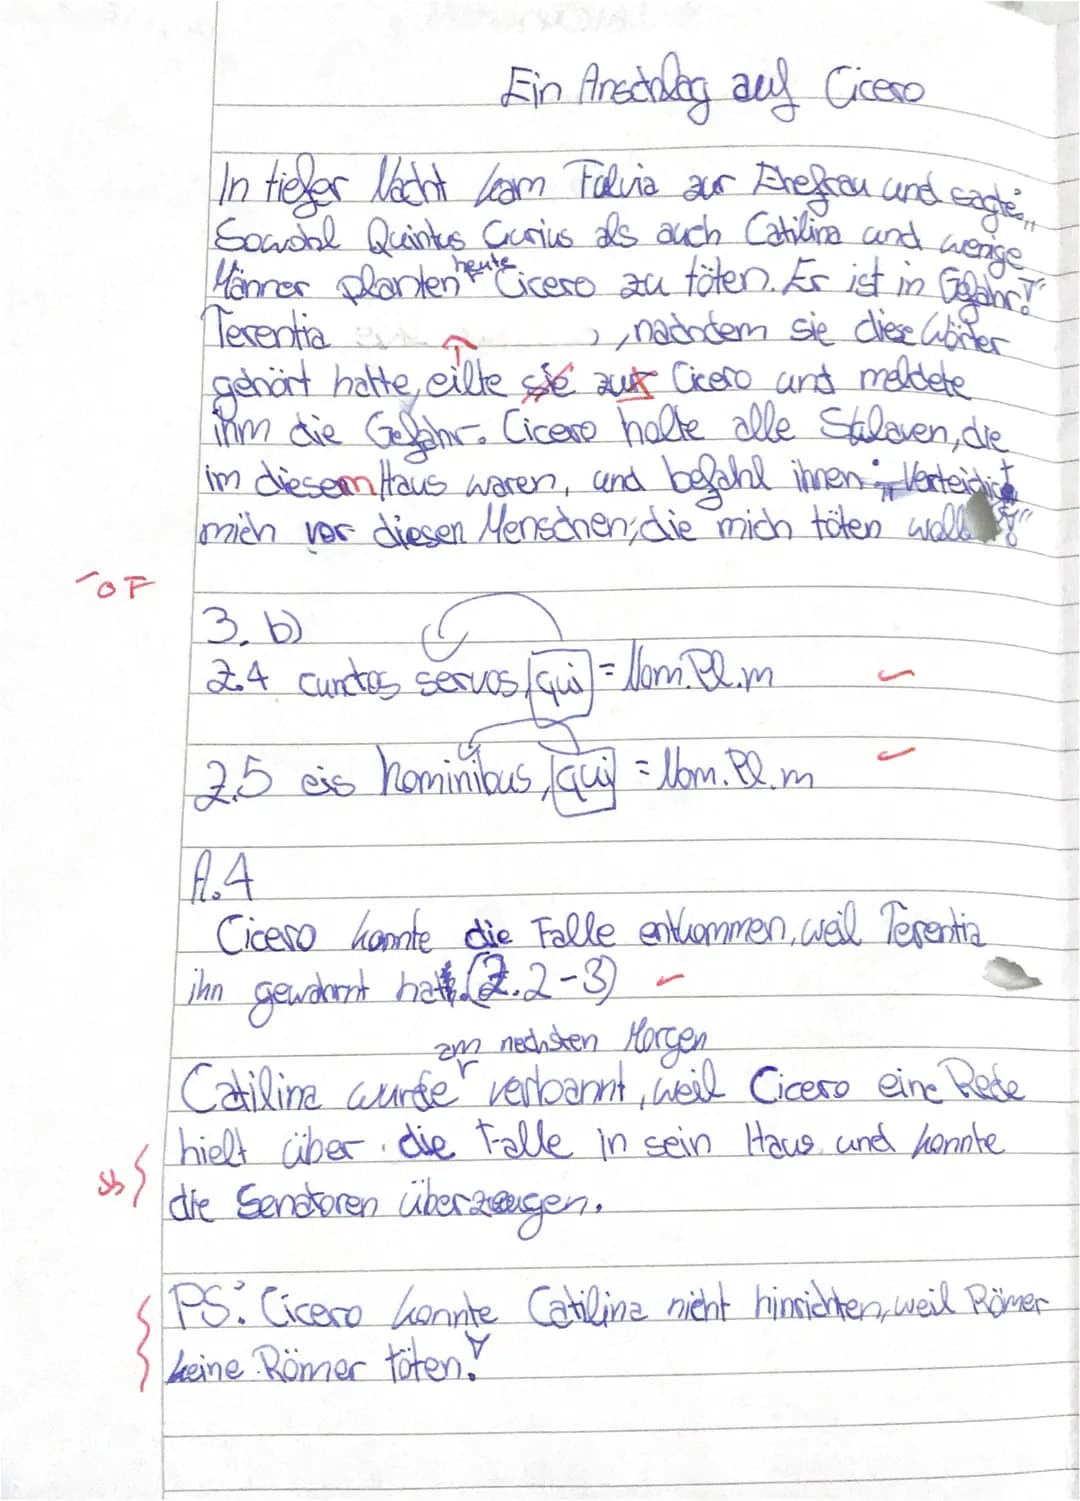 Ein Anschlag auf Cicero
In tiefer Nacht kam Fulvia zur Ehefrau und sagte: „
Sowohl Quintus Curius als auch Catilina und wenige
heute
Männer planten Cicero zu töten. Er ist in Gefahr!“
Terentia , nachdem sie diese Wörter
gehört hatte, eilte sie zur Cicero und meldete
ihm die Gefahr. Cicero holte alle Sklaven, die
im diesem Haus waren, und befahl ihnen: „Verteidigt
mich vor diesen Menschen, die mich töten
-0 F
3. b)
Z.4 cunctos servos, qui = Nom. Pl. m
Z.5 eis hominibus, qui = Nom. Pl. m
A.4
Cicero konnte die Falle entkommen, weil Terentia
ihn gewahrnt hat. (Z. 2-3)
am nechsten Morgen
Catilina wurde verbannt, weil Cicero eine Rede
hielt über die Falle in sein Haus und konnte
die Senatoren überzeugen.
PS: Cicero konnte Catilina nicht hinrichten, weil Römer
keine Römer töten.